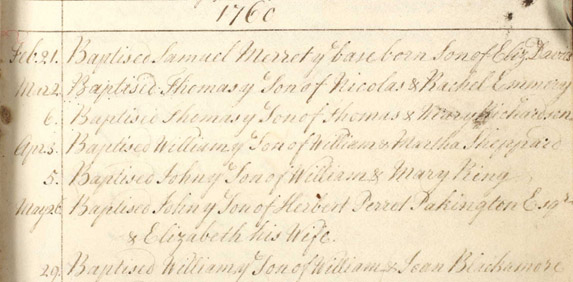 1760
Feb 21. Baptised Samuel Merrot y base born Son of Eliz Davis
Mar 2. Baptised Thomas y Son of Nicolas & Rachel Emmery
6. Baptised Thomas y Son of Thomas & Richardson
Apr 5. Baptised William y Son of William & Martha Sheppard
5. Baptised John y Son of William & Mary King
May 26. Baptised John y Son of Herbert Perrot Pakington Esqr
& Elizabeth his Wife.
29. Baptised William y Son of William & Joan Blackamore